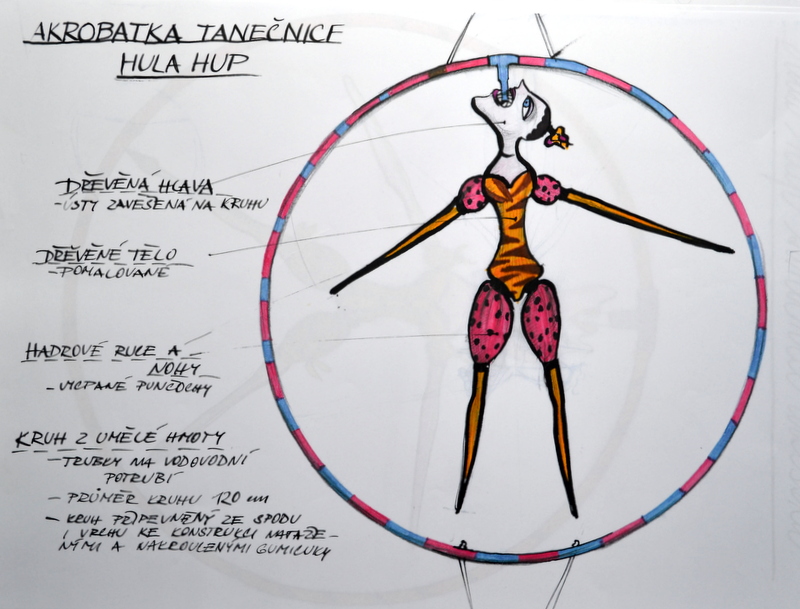 AKROBATKA TANEČNICE
HULA HUP
DŘEVĚNÁ HLAVA
- ÚSTY ZAVĚŠENÁ NA KRUHU
DŘEVĚNÉ TĚLO
- POMALOVANÉ
HADROVÉ RUCE A
NOHY
- VYCPANÉ PUNČOCHY
KRUH Z UMĚLÉ HMOTY
- TRUBKY NA VODOVODNÍ
POTRUBÍ
- PRŮMĚR KRUHU 120 cm
- KRUH PŘIPEVNĚNÝ ZE SPODU
I VRCHU KE KONSTRUKCI NATAŽE-
NÝMI A NAKROUCENÝMI GUMICUKY